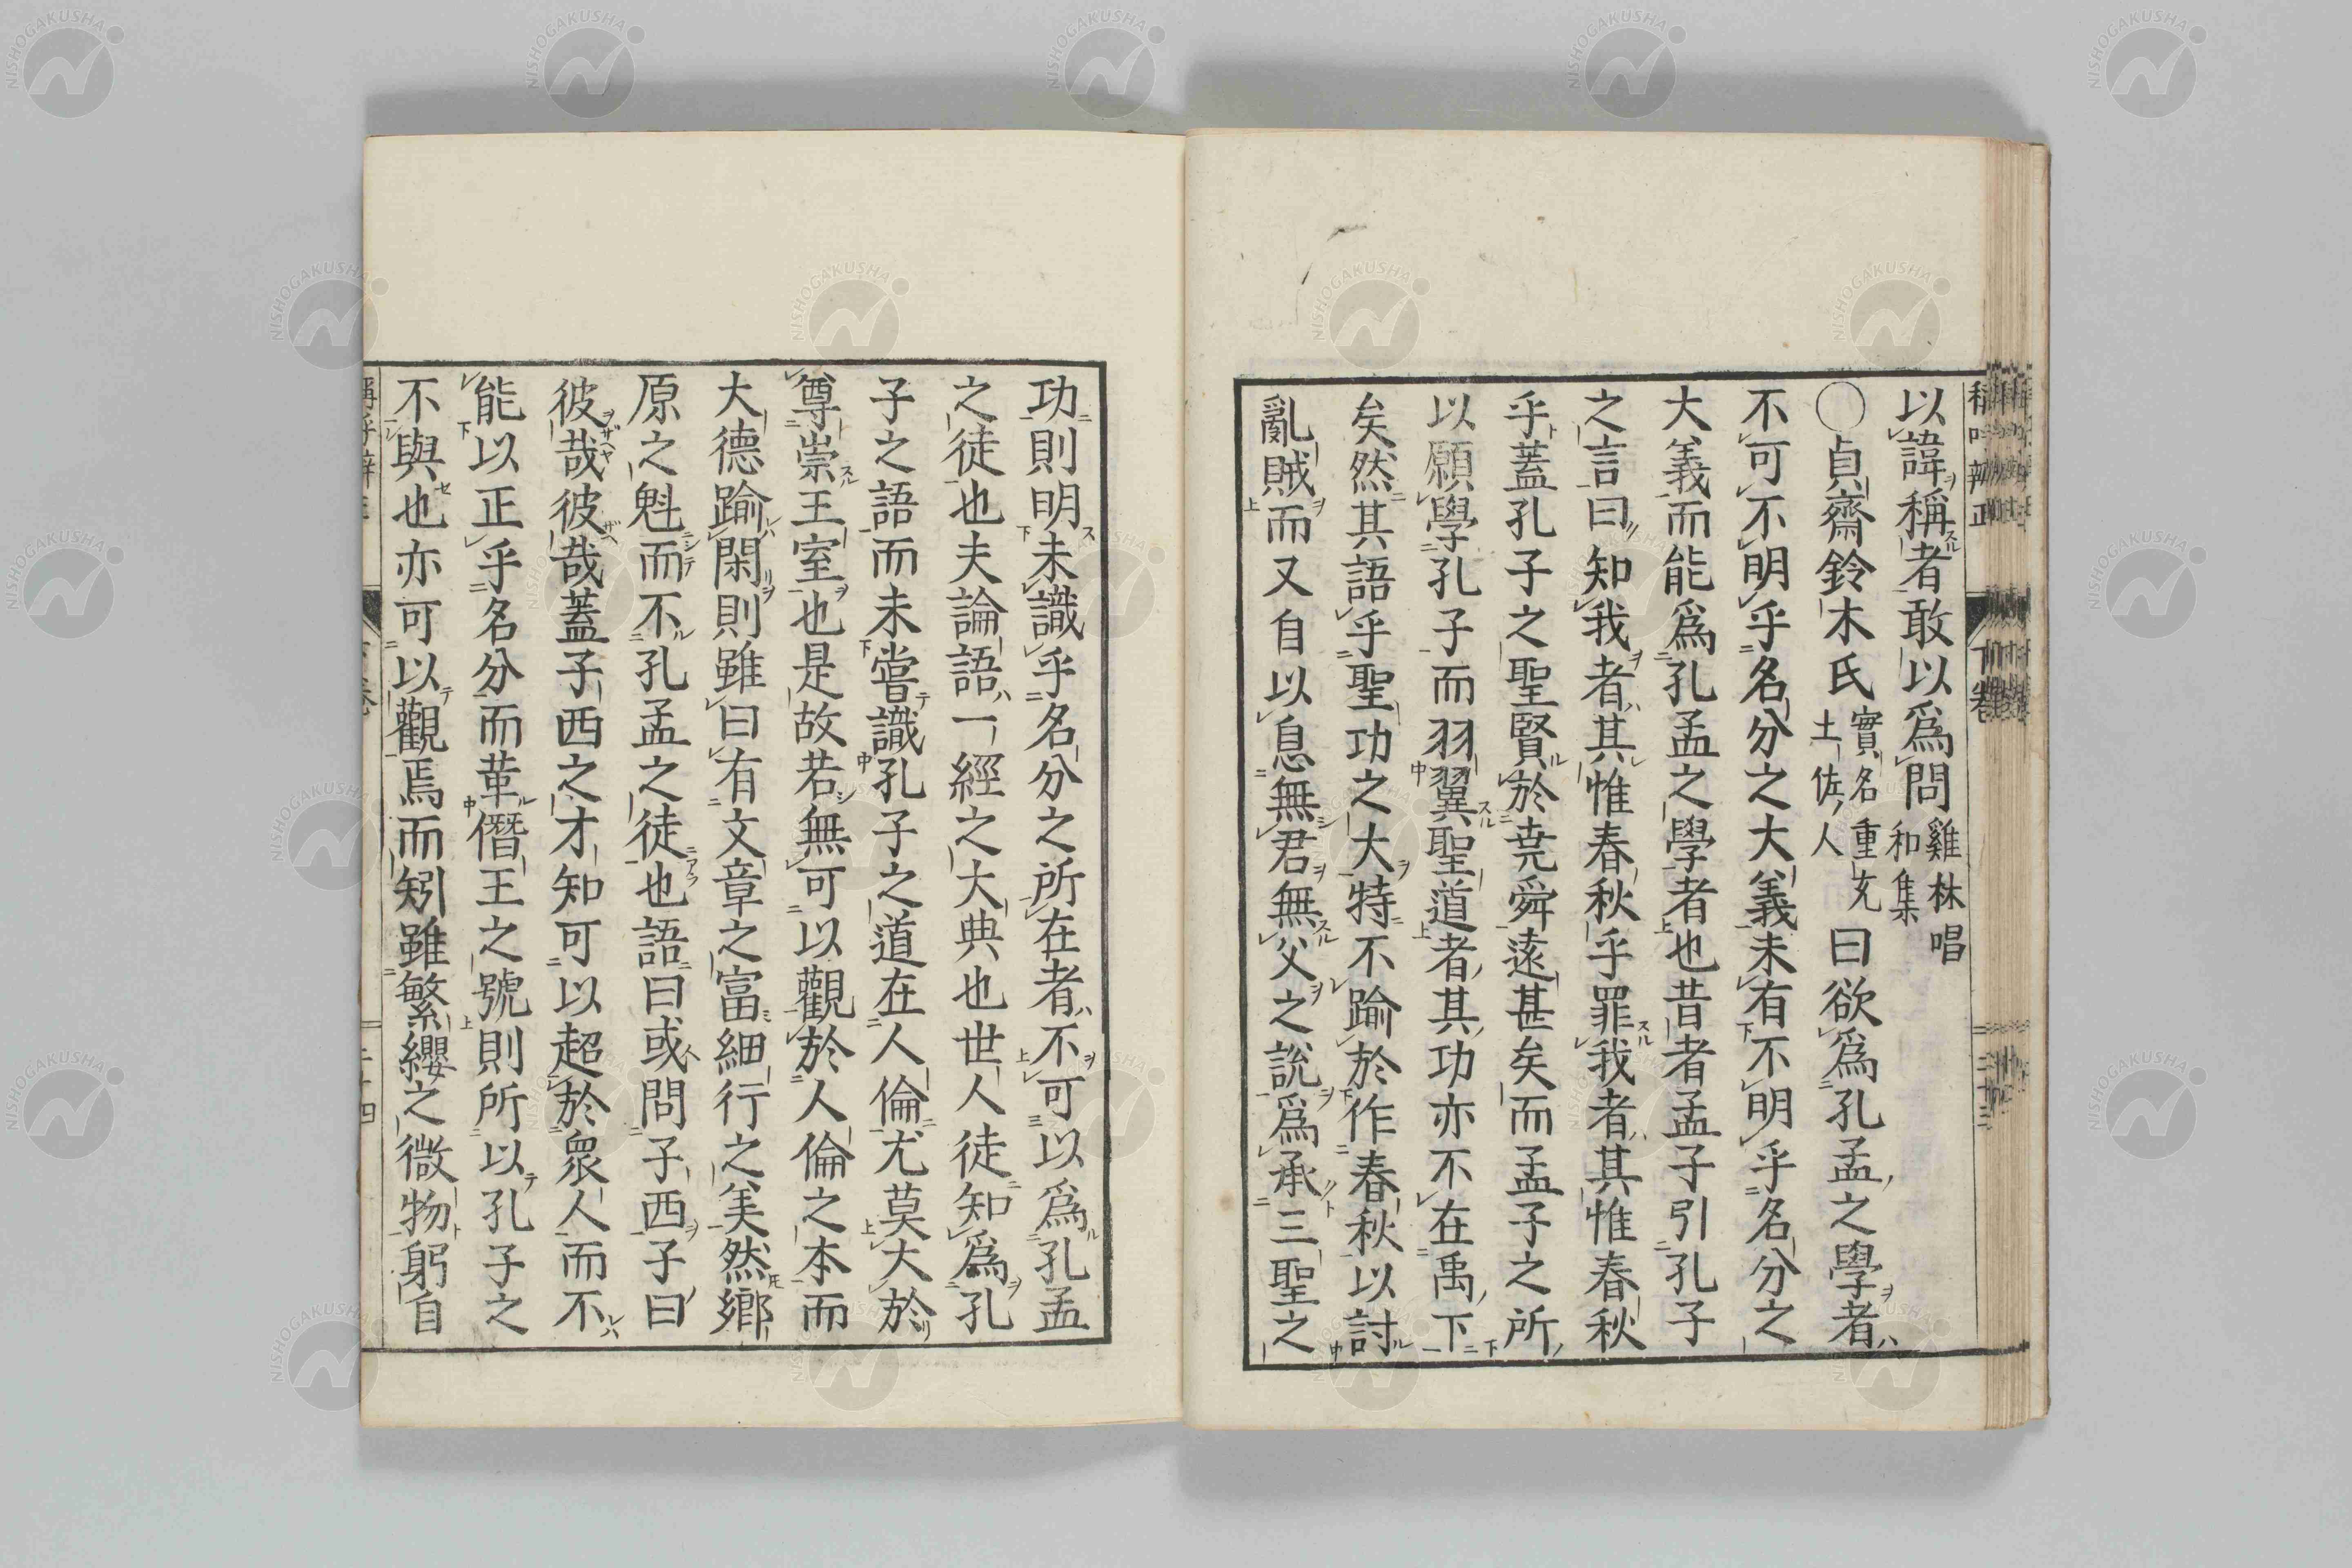 以諱稱者敢以爲問雞林唱和集
〇貞齋鈴木氏實名重充土佐人曰欲爲孔孟之學者
不可不明乎名分之大義未有不明乎名分之
大義而能爲孔孟之學者也昔者孟子引孔子
之言曰知我者其惟春秋乎罪我者其惟春秋
乎蓋孔子之聖賢於堯舜遠甚矣而孟子之所
以願學孔子而羽翼聖道者其功亦不在禹下
矣然其語乎聖功之大特不踰於作春秋以討
亂賊而又自以息無君無父之說爲承三聖之
功則明未識乎名分之所在者不可以爲孔孟
之徒也夫論語一經之大典也世人徒知爲孔
子之語而未嘗識孔子之道在人倫尤莫大於
尊崇王室也是故若無可以觀於人倫之本而
大德踰閑則雖曰有文章之富細行之美然鄉
原之魁而不孔孟之徒也語曰或問子西子曰
彼哉彼哉蓋子西之才知可以超於衆人而不
能以正乎名分而革僭王之號則所以孔子之
不與也亦可以觀焉而矧雖繁纓之微物躬自
稱呼辨正 下卷
NISHOGAKUSHA